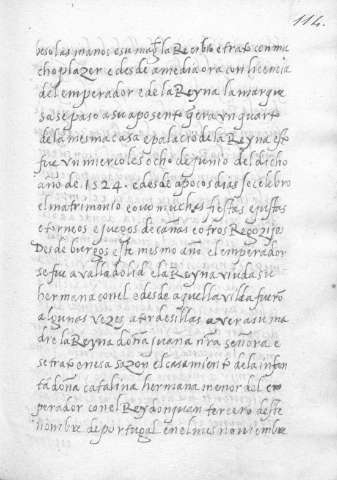 114.
beso las manos e su mag.t la Recibio e trato con mu
cho plazer e desde a media ora con licencia
del emperador e de la Reyna la marque
sa se paso a su aposento q̃ era un quarto
de la mesma casa e palacio de la Reyna esto
fue un miercoles ocho de junio del dicho
año de 1524. e desde a pocos dias se celebro
el matrimonio e ovo muchas fiestas e justas
e torneos e juegos de cañas e otros Regozijos
Desde burgos este mesmo año el emperador
se fue a valladolid e la Reyna viuda su
hermana con el e desde aquella villa fuerõ
algunas vezes a tordesillas a ver a su ma
dre la Reyna doña juana nr̃a señora e
se trato en esa sazon el casamiento de la infan
ta doña catalina hermana menor del em
perador con el Rey don juan tercero deste
nombre de portugal en el mes noviembre